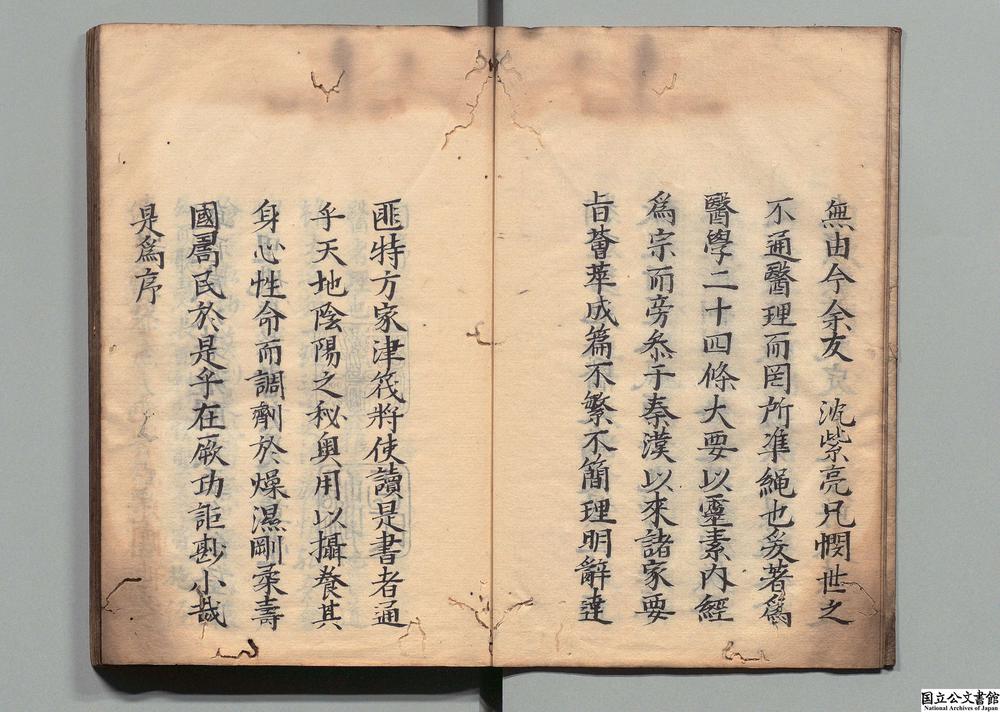 無由今余友 沈紫亮凡憫世之
不通醫理而罔所準繩也爰著爲
醫學二十四條大要以靈素內經
爲宗而旁叅于秦漢以來諸家要
旨薈萃成篇不繁不簡理明辭達
匪特方家津筏將使讀是書者通
乎天地陰陽之秘奧用以攝養其
身心性命而調劑於燥濕剛柔壽
國壽民於是乎在厥功詎尠小哉
是爲序
国立公文書館
National Archives of Japan